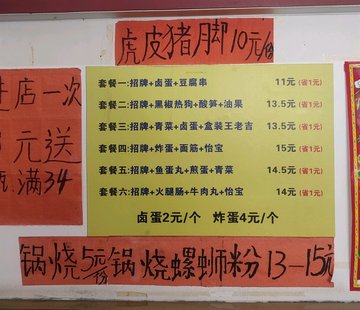 虎皮猪脚10元/份
进店一次
元送
满34
套餐一:招牌+卤蛋+豆腐串 11元(省1元)
套餐二:招牌+黑椒热狗+酸笋+油果 13.5元(省1元)
套餐三:招牌+青菜+卤蛋+盒装王老吉 13.5元(省1元)
套餐四:招牌+炸蛋+面筋+怡宝 15元(省1元)
套餐五:招牌+鱼蛋丸+煎蛋+青菜 14.5元(省1元)
套餐六:招牌+火腿肠+牛肉丸+怡宝 14元(省1元)
卤蛋2元/个 炸蛋4元/个
锅烧5元/份锅烧螺蛳粉13-15元